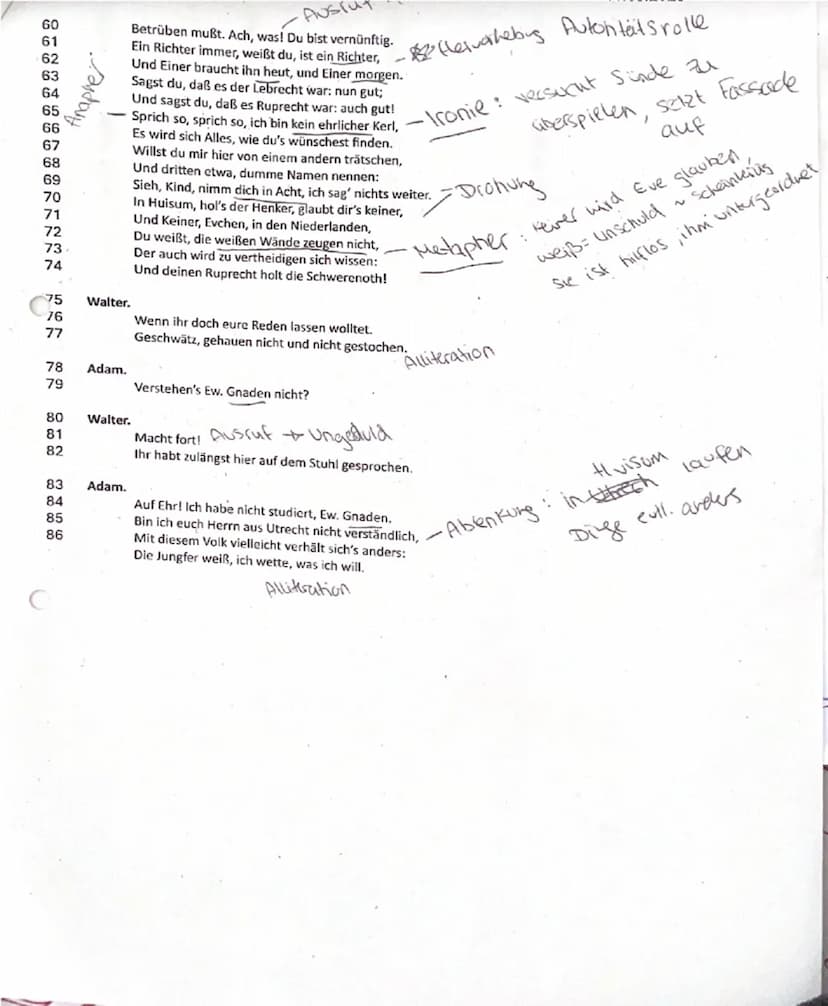 – Ausruf
60 Betrüben mußt. Ach, was! Du bist vernünftig.
61 Ein Richter immer, weißt du, ist ein Richter, – Hervorhebung Autoritätsrolle
62 Und Einer braucht ihn heut, und Einer morgen.
63 Sagst du, daß es der Lebrecht war: nun gut;
64 Und sagst du, daß es Ruprecht war: auch gut!
Anapher
65 — Sprich so, sprich so, ich bin kein ehrlicher Kerl, – Ironie: versucht Sünde zu
überspielen, setzt Fassade
auf
66 Es wird sich Alles, wie du's wünschest finden.
67 Willst du mir hier von einem andern trätschen,
68 Und dritten etwa, dumme Namen nennen:
69 Sieh, Kind, nimm dich in Acht, ich sag' nichts weiter. – Drohung
70 In Huisum, hol's der Henker, glaubt dir's keiner,
71 Und Keiner, Evchen, in den Niederlanden,
72 Du weißt, die weißen Wände zeugen nicht, – Metapher: keiner wird Eve glauben,
weiß = Unschuld ~ scheinheilig
sie ist hilflos, ihm untergeordnet
73 Der auch wird zu vertheidigen sich wissen:
74 Und deinen Ruprecht holt die Schwerenoth!
75 Walter.
76 Wenn ihr doch eure Reden lassen wolltet.
77 Geschwätz, gehauen nicht und nicht gestochen.
Alliteration
78 Adam.
79 Verstehen's Ew. Gnaden nicht?
80 Walter.
81 Macht fort! Ausruf → Ungeduld
82 Ihr habt zulängst hier auf dem Stuhl gesprochen.
83 Adam.
84 Auf Ehr! Ich habe nicht studiert, Ew. Gnaden.
85 Bin ich euch Herrn aus Utrecht nicht verständlich, – Ablenkung: in Huisum laufen
Dinge evll. anders
86 Mit diesem Volk vielleicht verhält sich's anders:
Die Jungfer weiß, ich wette, was ich will.
Alliteration